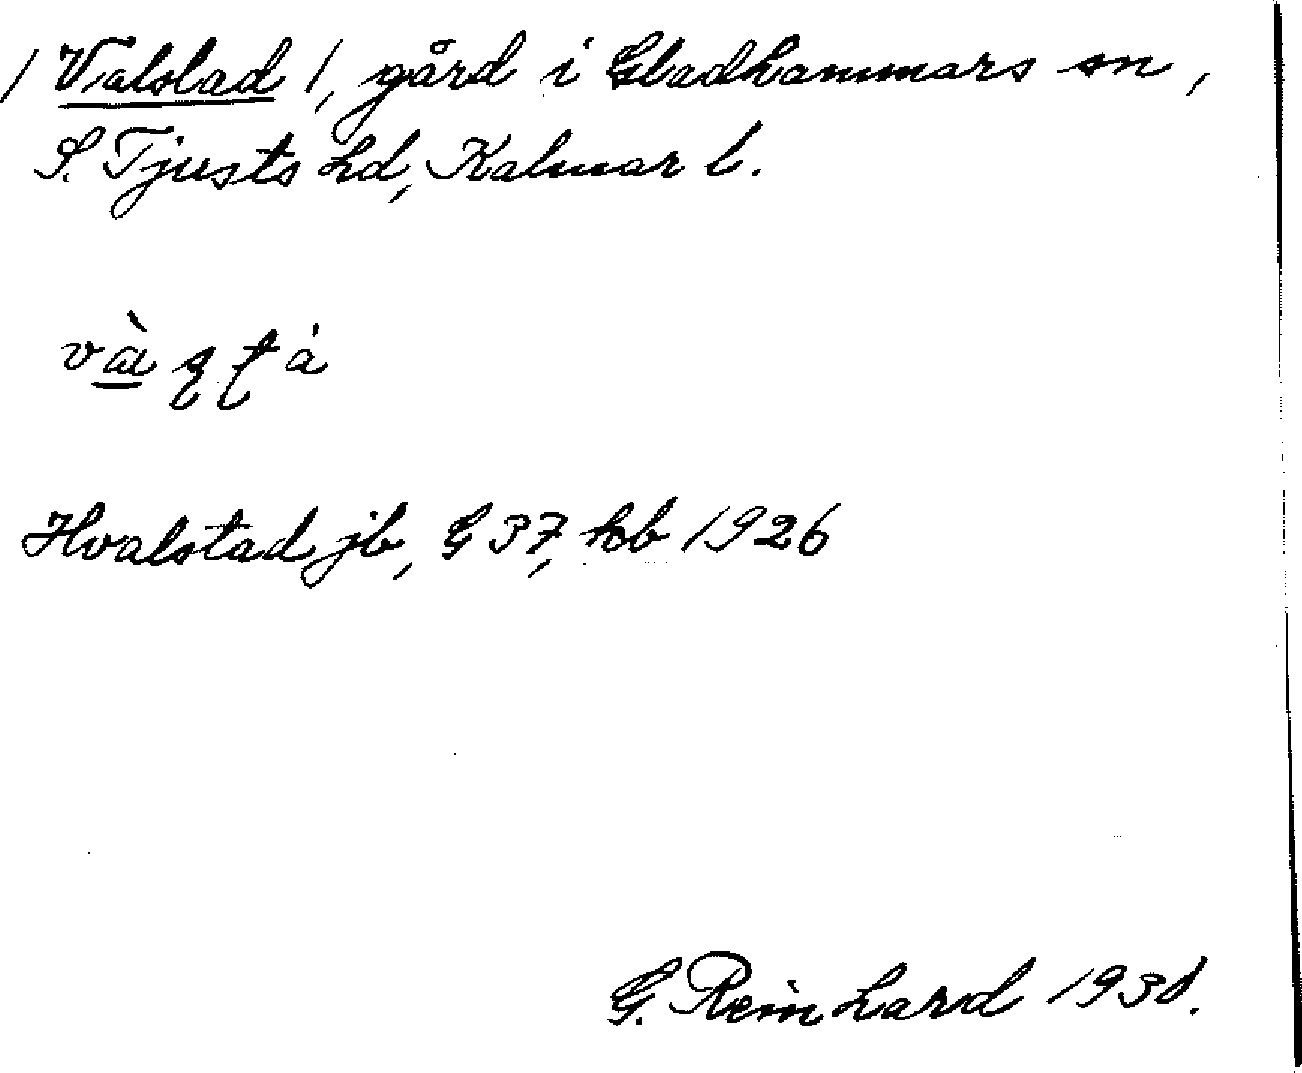 /Valstad/, gård i Gladhammars sn,
S. Tjusts hd, Kalmar l.
Hvalstad jb, G 37, kb 1926
G. Reinhard 1930.